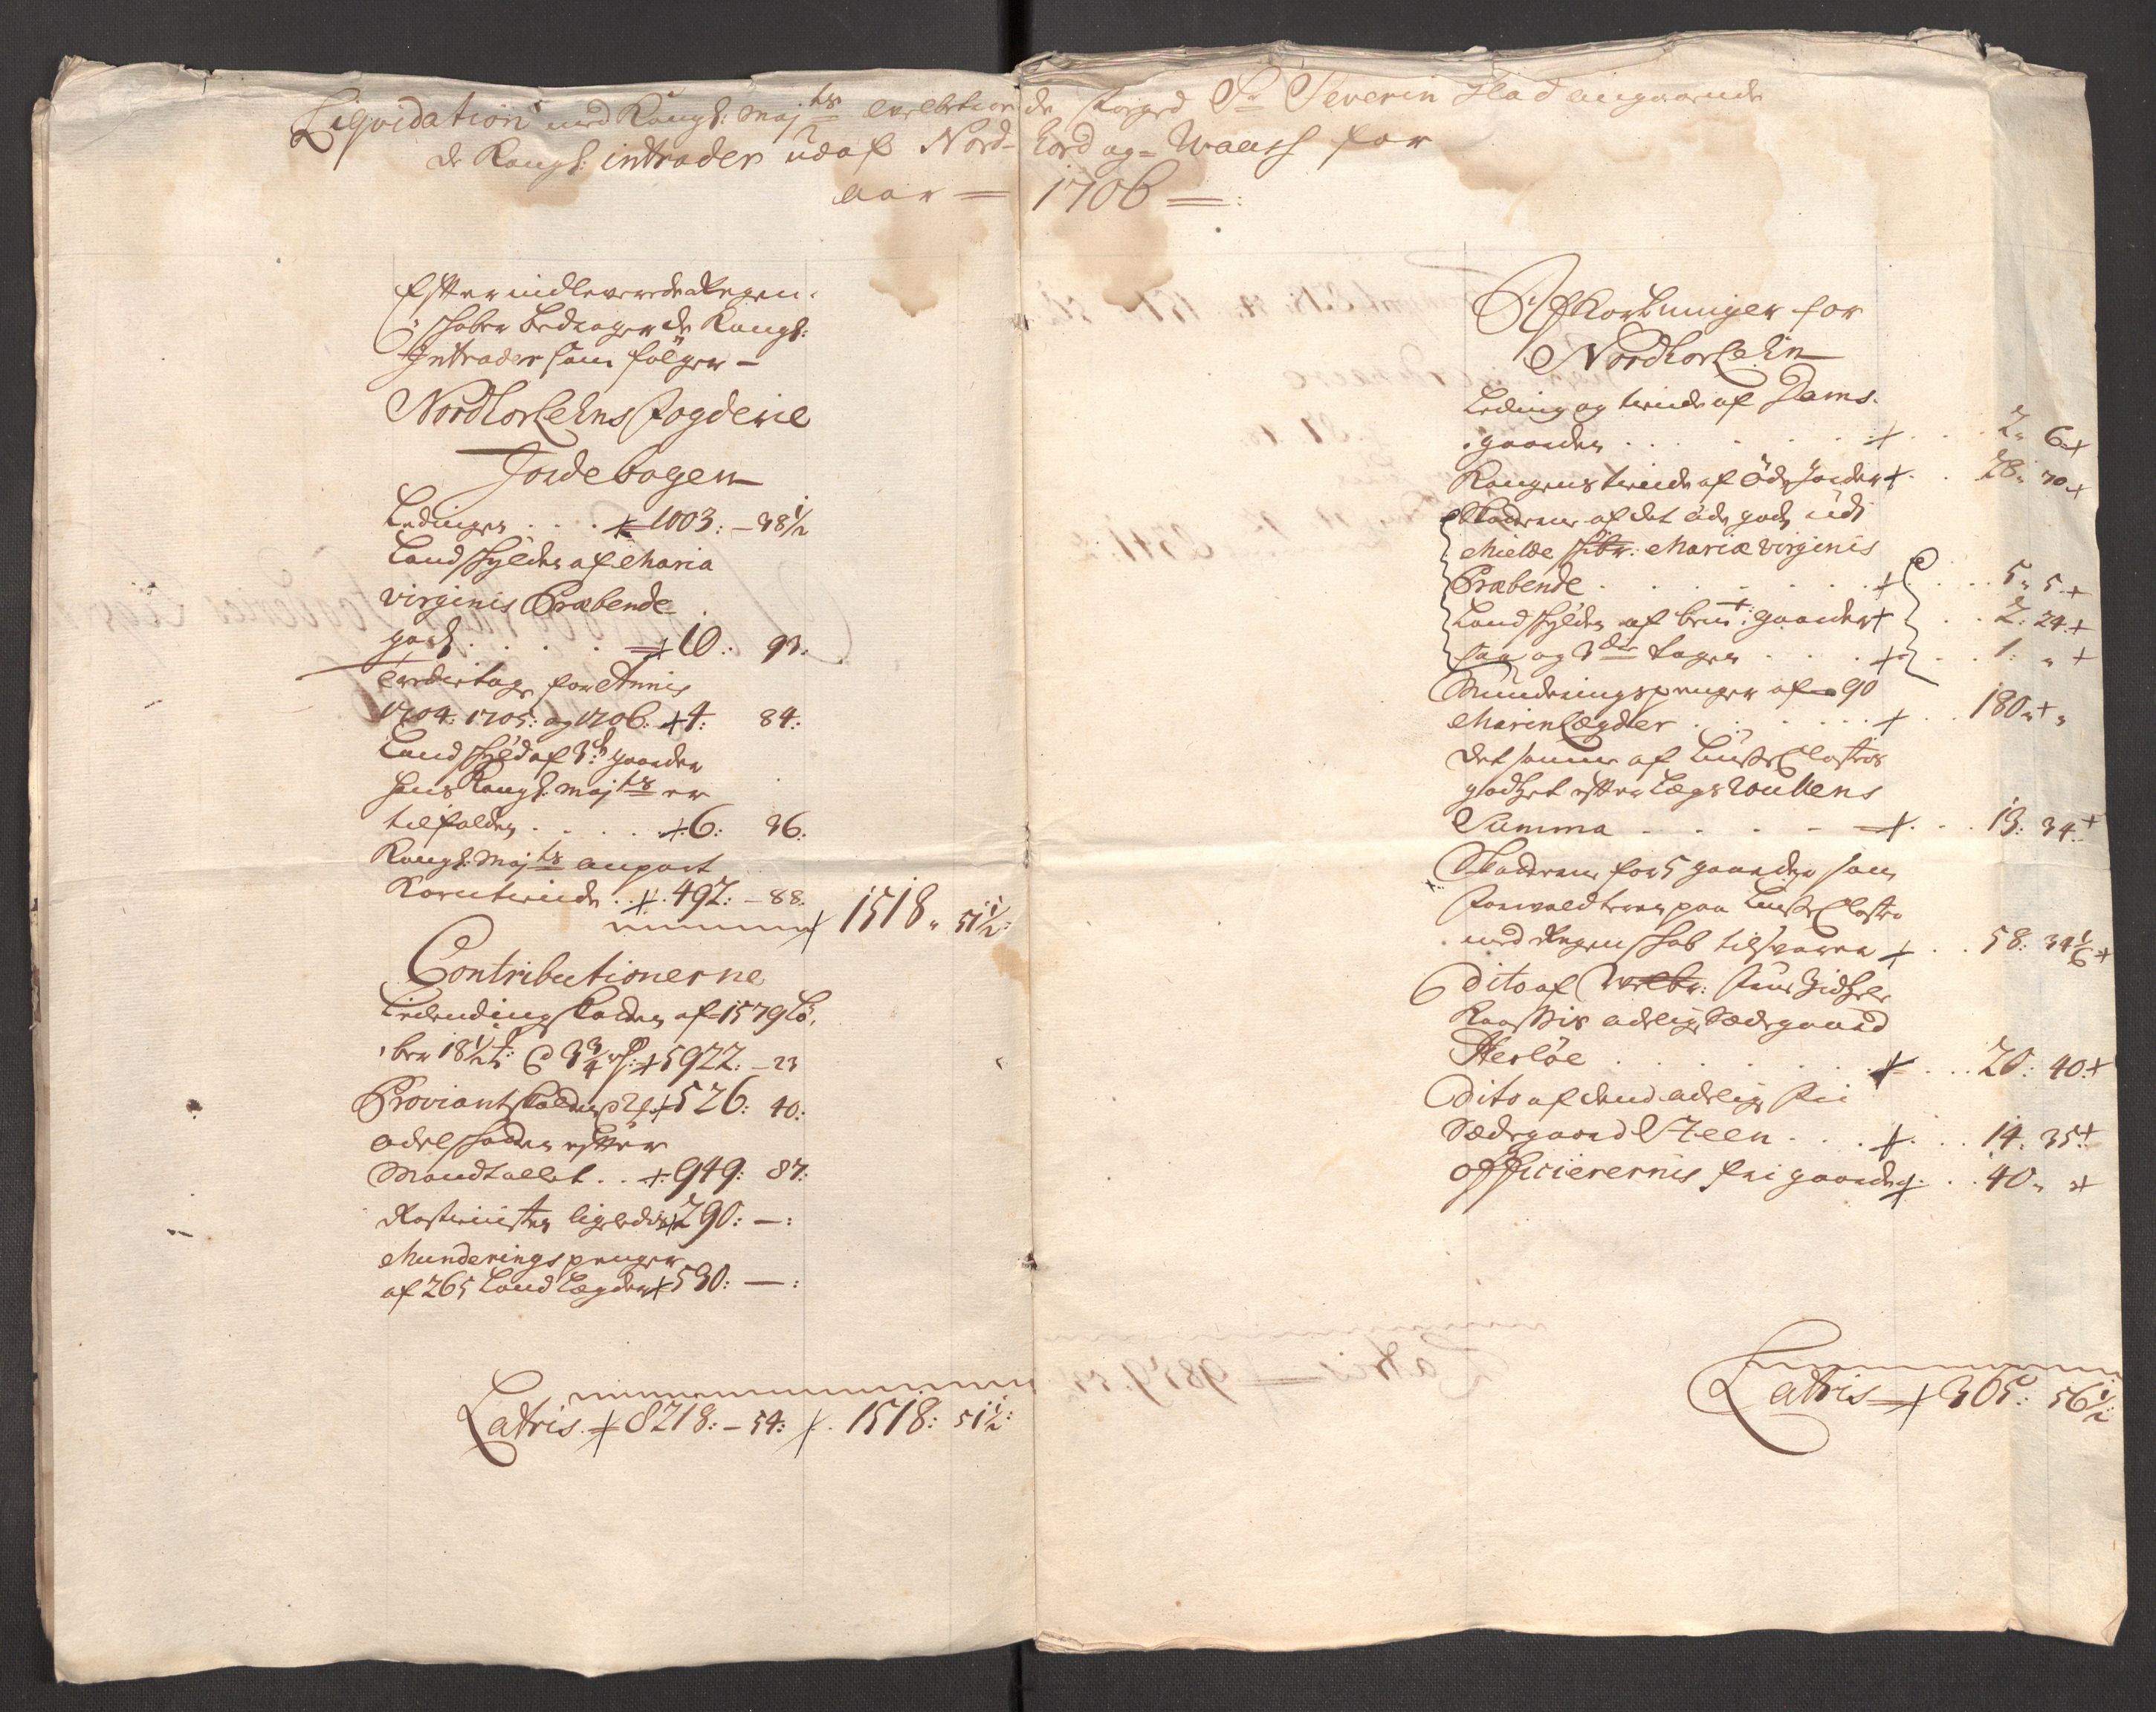 Liqvidation med Kongl: Maj:ts velbetroede Foged Sr Severin Blad angaaende
de Kongl: intrader udaf Nord-hord og Waass for
aar = 1706 =:
Efter indleverede Regen-
skaber bedrager de Kongl:
Intrader som følger -
Nordhorlehns Fogderie
Jordebogen
Ledingen . . . 1003: - 38 1/2
Landskylden af Maria
virginis Præbende
gods . . . . . 10: 93:
tredietage for Annis
1704: 1705: og 1706: 4: 84:
Landskyld af 3de gaarder
hans Kongl: Maj:ts er
tilfalden . . . . . 6: 36:
Kongl: Maj:ts anpart
Korntiende . . 492: - 88:
1518 „ 51 1/2:
Contributionerne
Leilendingskatten af 1579 Lø-
ber 18 1/2 @ 3 3/4 5922: - 23
Proviantskatten 526: 40:
odelskatten efter
Mandtallet . . 949: 87:
Rostienisten ligeledis 290: - :
Munderingspenger
af 265 Land Lægder 530: - :
Latris 8218: - 54: 1518: 51 1/2:
Afkortninger for
Nordhorlehn
Leding og tiende af Dams-
gaarden . . . 2 „ 6
Kongens tiende af øde jorder . . 28 „ 70
Skatterne af det øde gods udi
Mielde skibr: Mariæ virginis
Præbende . . . . . 5 „ 5
Landskylden af bem:te gaarder . . 2: 24
saa og 3die tagen . . . 1: „
Munderingspenger af 90
Marinlægder . . . . . 180 „ „
det samme af Lysse Closters
godset efter Lægs Roullens
Summa . . . . 13: 34
Skatterne for 5 gaarder som
Forvalteren paa Lysse Closter
med Regenskab tilsvarer . . 58: 34 1/6
dito af Welbr:
adelig Sædegaard
Herløe . . . . . 20: 40
Dito af dend adelig frie
Sædegaard Steen . . . 14: 35
officierernis fri gaarder . . 40 „ „
Latris 365: 56 1/2